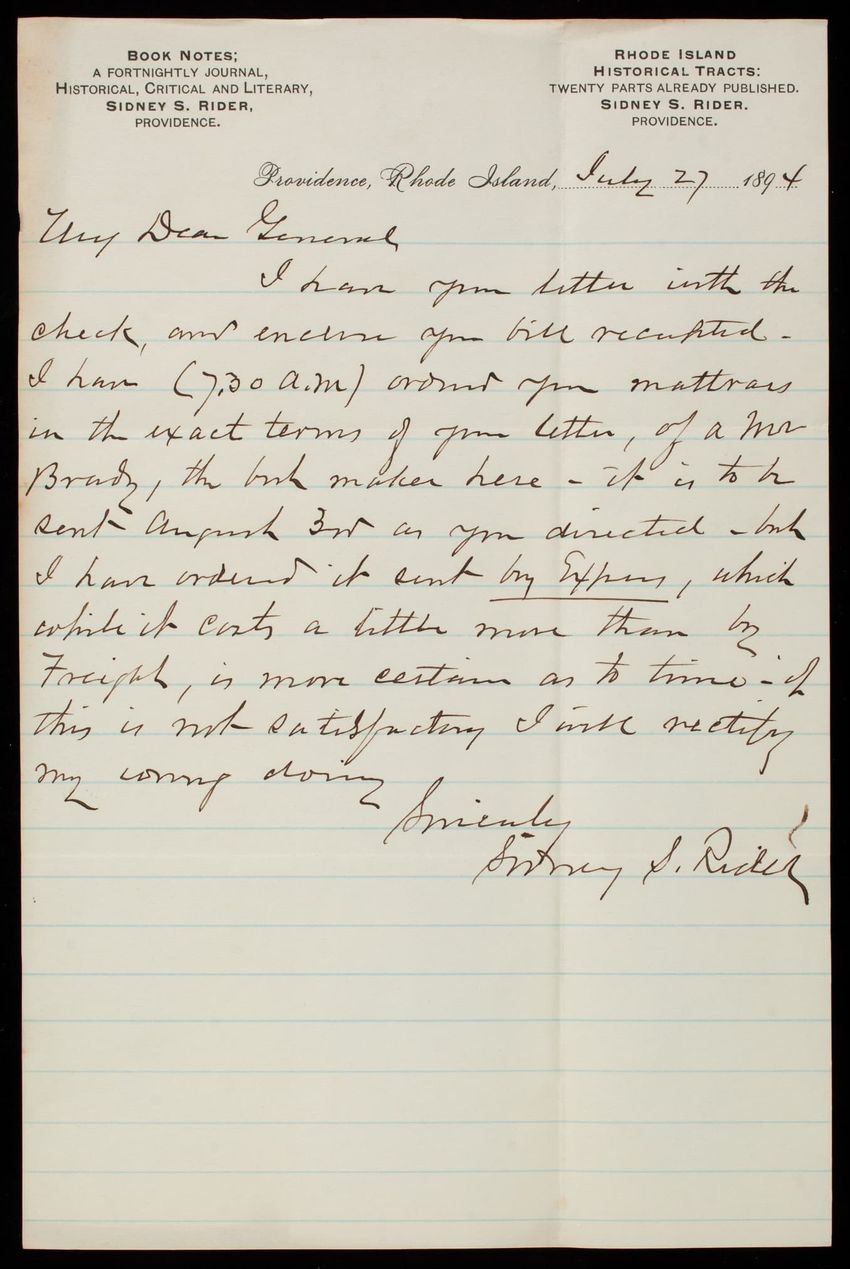 BOOK NOTES;
A FORTNIGHTLY JOURNAL,
HISTORICAL, CRITICAL AND LITERARY,
SIDNEY S. RIDER,
PROVIDENCE.
RHODE ISLAND
HISTORICAL TRACTS:
TWENTY PARTS ALREADY PUBLISHED.
SIDNEY S. RIDER.
PROVIDENCE.
Providence, Rhode Island, July 27 1894
My Dear General
I have your letter with the
check, and enclose you bill receipted -
I have (7.30 A.M) ordered your mattrass
in the exact terms of your letter, of a Mr
Brady, the best maker here - it is to be
sent August 3rd as you directed - but
I have ordered it sent by Express, which
while it costs a little more than by
Freight, is more certain as to time - if
this is not satisfactory I will rectify
my wrong doing
Sincerely
Sidney S. Rider